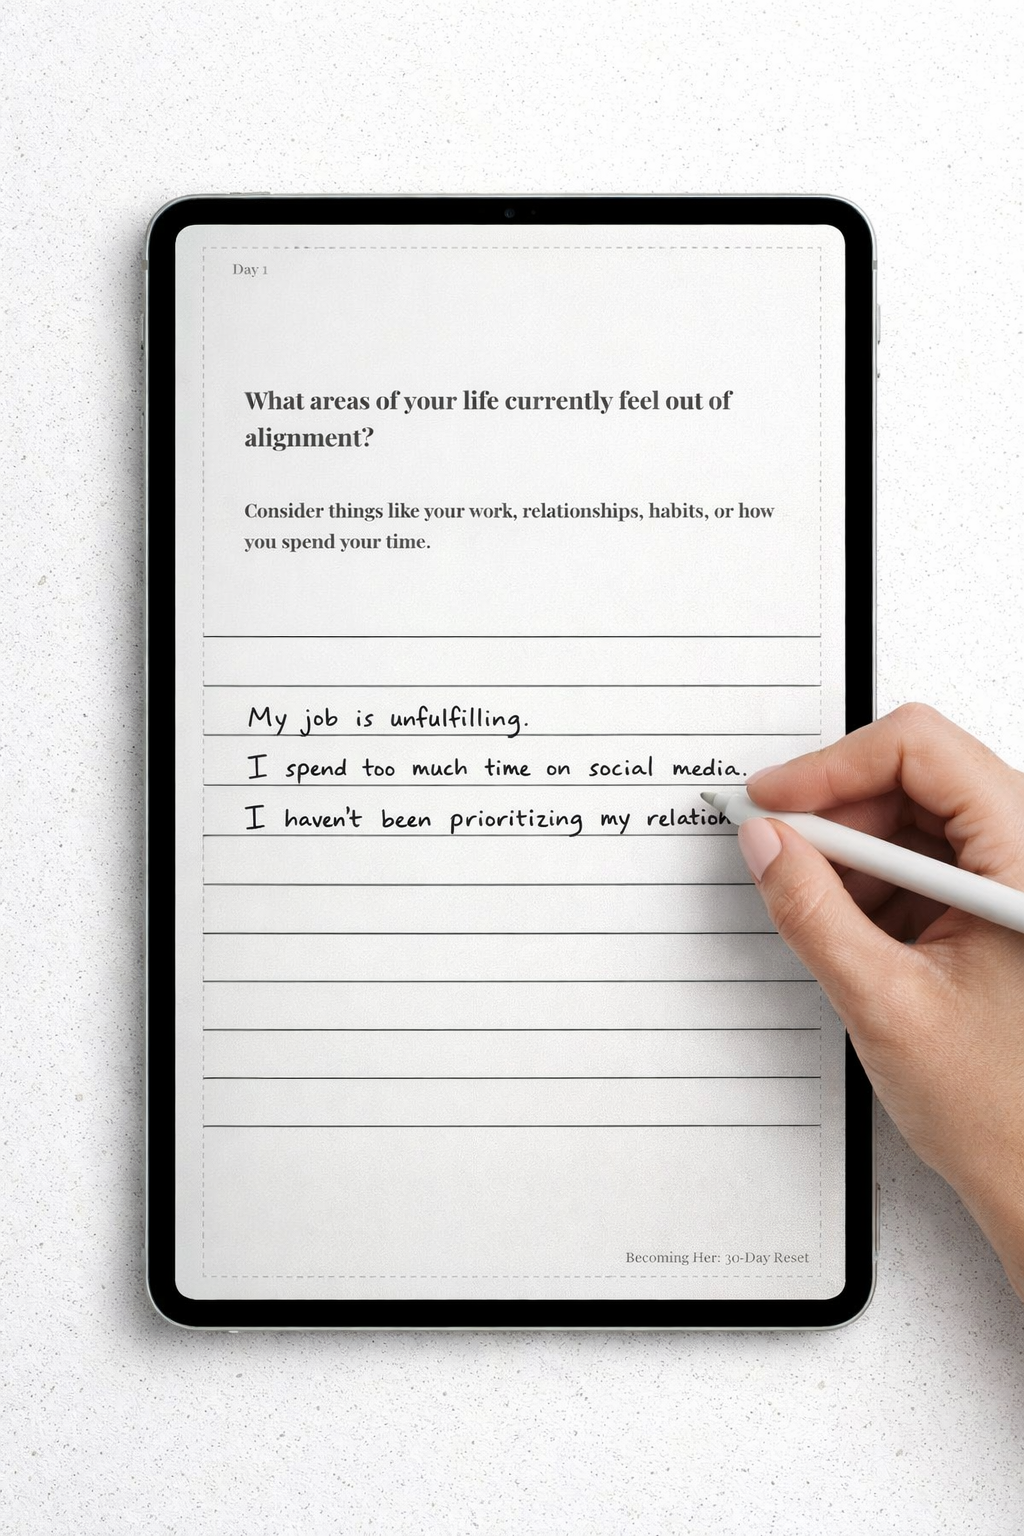 Day 1
What areas of your life currently feel out of
alignment?
Consider things like your work, relationships, habits, or how
you spend your time.
My job is unfulfilling.
I spend too much time on social media.
I haven't been prioritizing my relation
Becoming Her: 30-Day Reset